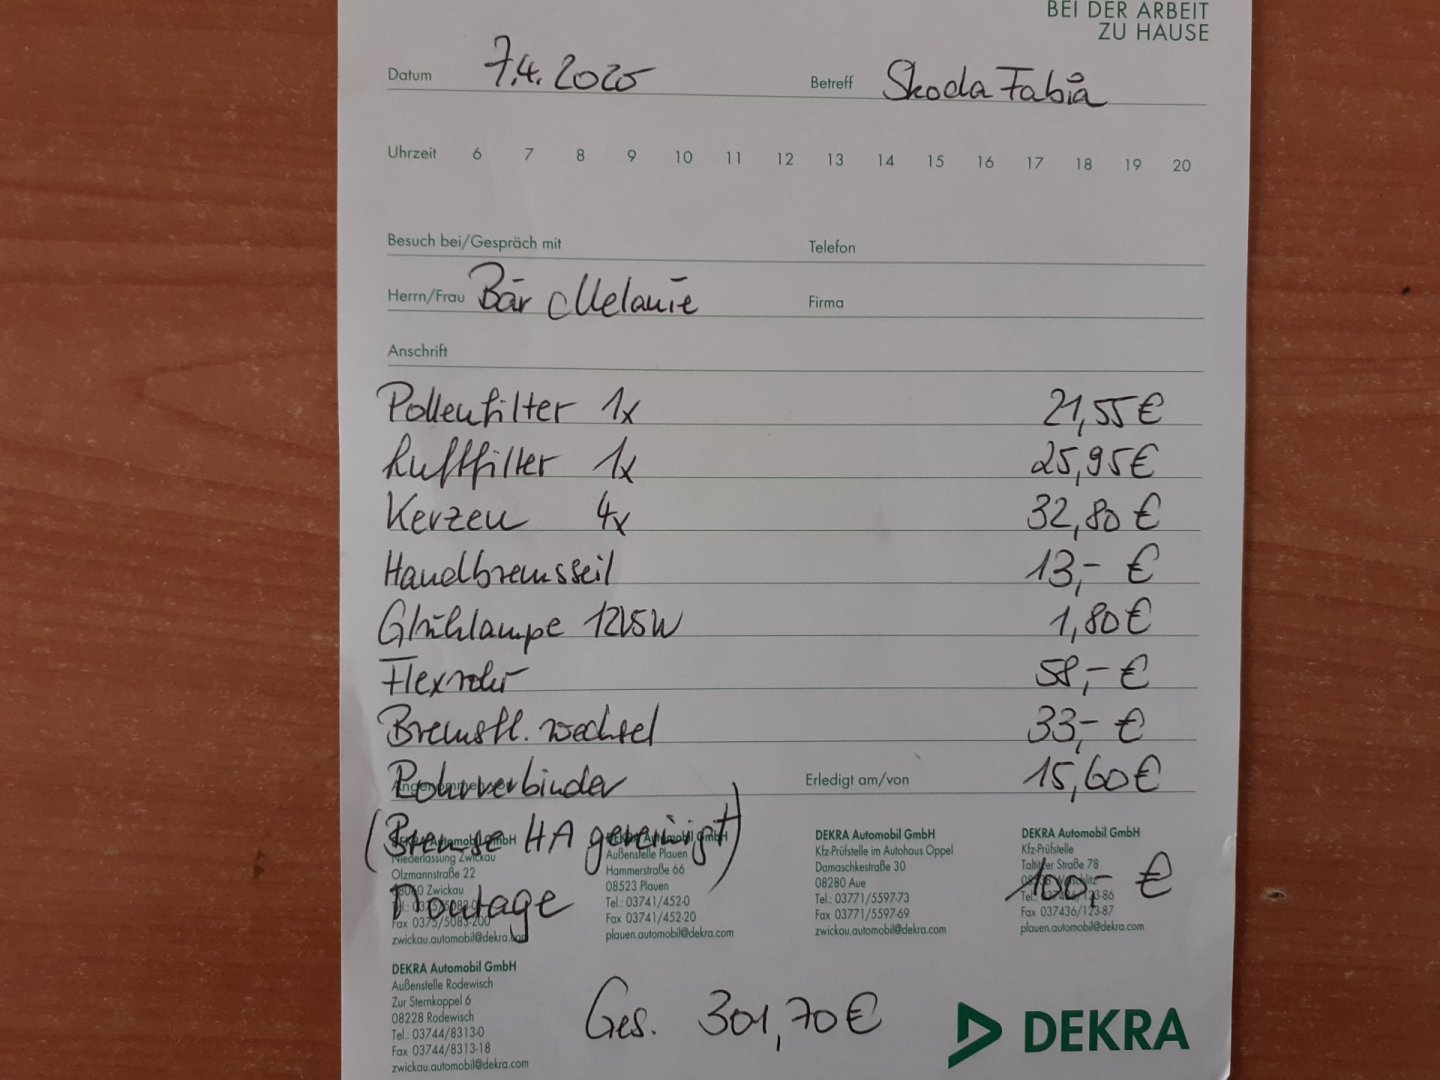 BEI DER ARBEIT
ZU HAUSE
Datum 7.4. 2025 Betreff Skoda Fabia
Uhrzeit 6 7 8 9 10 11 12 13 14 15 16 17 18 19 20
Besuch bei/Gespräch mit Telefon
Herrn/Frau Bär Melanie Firma
Anschrift
Pollenfilter 1x 21,55€
Luftfilter 1x 25,95€
Kerzen 4x 32,80 €
Handbremsseil 13,- €
Glühlampe 12V5W 1,80€
Flexrohr 58,- €
Bremsfl. wechsel 33,- €
Rohrverbinder Erledigt am/von 15,60€
(Bremse HA gereinigt)
Montage 100,- €
DEKRA Automobil GmbH
Niederlassung Zwickau
Olzmannstraße 22
Zwickau
Fax 0375/5083-200
zwickau.automobil@dekra.com
DEKRA Automobil GmbH
Außenstelle Plauen
Hammerstraße 66
08523 Plauen
Tel.: 03741/452-0
Fax 03741/452-20
plauen.automobil@dekra.com
DEKRA Automobil GmbH
Kfz-Prüfstelle im Autohaus Oppel
Damaschkestraße 30
08280 Aue
Tel.: 03771/5597-73
Fax 03771/5597-69
zwickau.automobil@dekra.com
DEKRA Automobil GmbH
Kfz-Prüfstelle
Taltitzer Straße 78
Fax 037436/123-87
plauen.automobil@dekra.com
DEKRA Automobil GmbH
Außenstelle Rodewisch
Zur Sternkoppel 6
08228 Rodewisch
Tel.: 03744/8313-0
Fax 03744/8313-18
zwickau.automobil@dekra.com
Ges. 301,70€
DEKRA